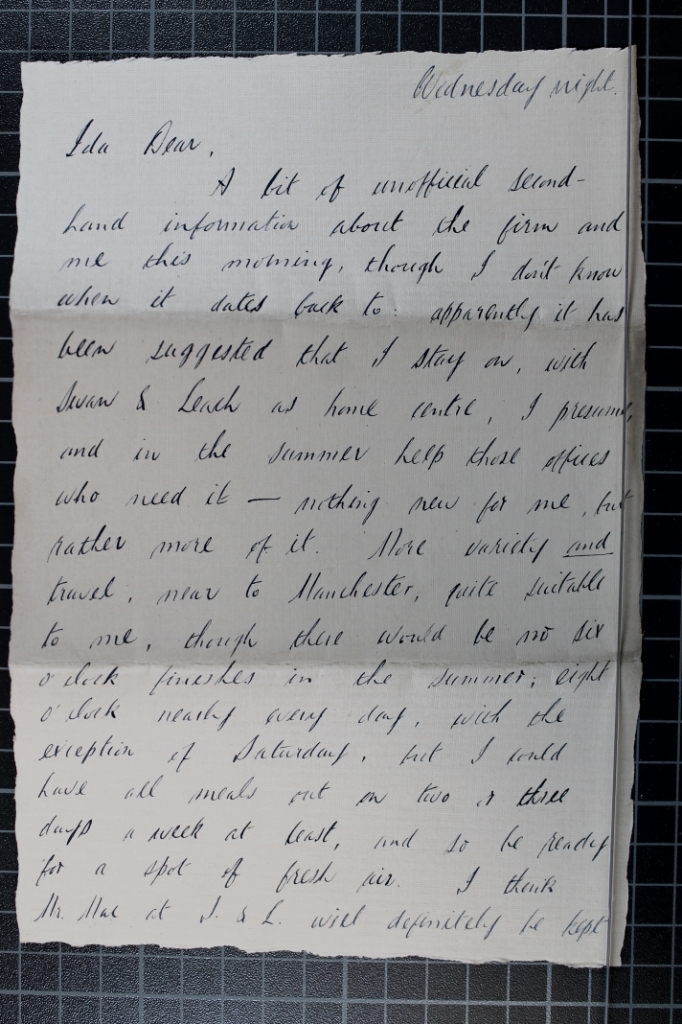 Wednesday night.
Ida Dear,
A bit of unofficial second-
hand information about the firm and
me this morning, though I don't know
when it dates back to: apparently it has
been suggested that I stay on, with
Swan & Leach as home centre, I presume,
and in the summer help those offices
who need it — nothing new for me, but
rather more of it. More variety and
travel, near to Manchester, quite suitable
to me, though there would be no six
o'clock finishes in the summer; eight
o'clock nearly every day, with the
exception of Saturday, but I could
have all meals out on two or three
days a week at least, and so be ready
for a spot of fresh air. I think
Mr. Mac at S. & L. will definitely be kept